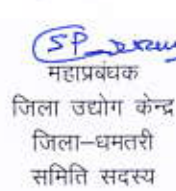 महाप्रबंधक
जिला उद्योग केन्द्र
जिला–धमतरी
समिति सदस्य